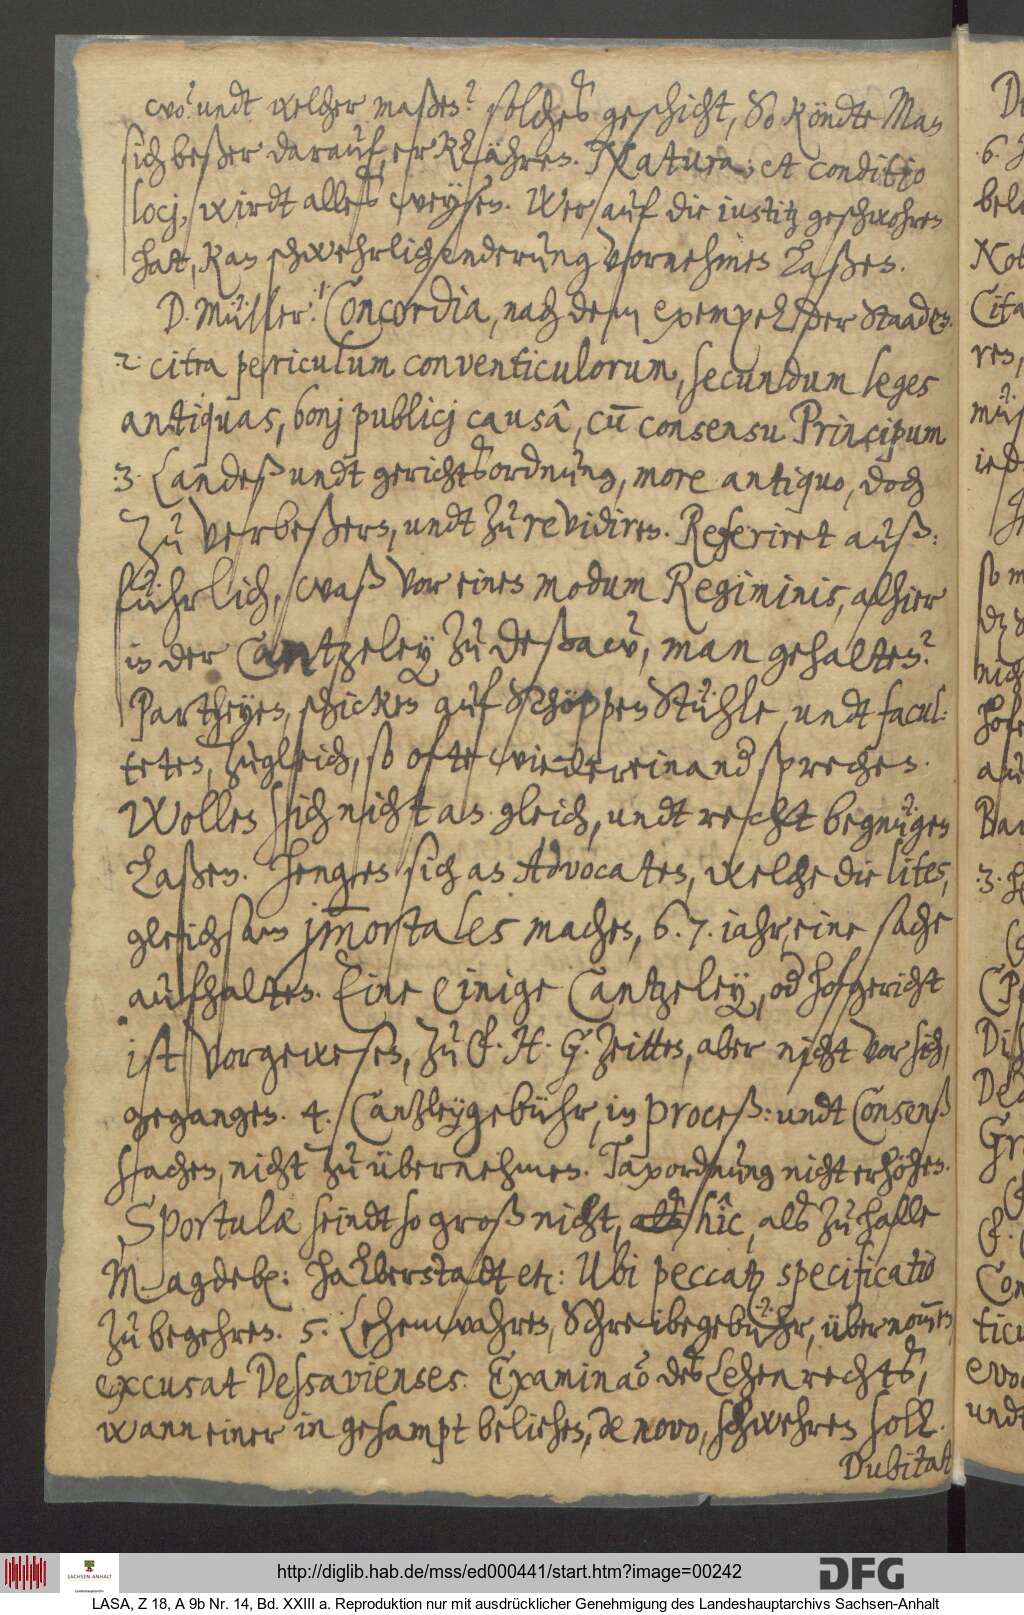 wo? undt welcher maßen? solches geschicht, So köndte Man
sich beßer darauf, erklähren. Natura; et conditio
locj, wirdt alles weysen. Wer auf die iustitz geschwohren
hatt, kan schwehrlich enderung vornehmen laßen.
D. Müller: 1. Concordia, nach dem exempel der Staaden.
2. citra periculum conventiculorum, secundum leges
antiquas, bonj publicj causâ, cum̄ consensu Principum
3. Landeß undt gerichtsordnung, more antiquo, doch
zu verbeßern, undt zu revidiren. Referiret auß:
führlich, waß vor einen modum Regiminis, alhier
in der Cantzeley zu Deßaw, man gehalten?
Partheyen, schicken auf Schöppen Stühle, undt facul:
teten, zugleich, so ofte wiedereinand sprechen.
Wollen sich nicht an gleich, undt recht begnügen
laßen. Hengen sich an Advocaten, welche die lites,
gleichsam im̄ortales machen, 6. 7. iahr, eine sache
aufhalten. Eine Einige Cantzeley, od hofgericht
ist vorgewesen, zu E. H. G. Zeitten, aber nicht vor sich,
gegangen. 4. Cantzleygebühr, in proceß: undt Consenß
sachen, nicht zu übernehmen. Taxordnung nicht erhöhen.
Sportulæ seindt so groß nicht, hîc, als zu Halle
Magdeb: Halberstadt etc: Ubi peccatz specificatio
zu begehren. 5. Lehenwahren, Schreibegebühr, übernom̄en,
excusat Dessavienses. Examinao des Lehenrechts,
wann einer in gesampt beliehen, de novo, schwehren soll.
Dubitat
http://diglib.hab.de/mss/ed000441/start.htm?image=00242
DFG
SACHSEN-ANHALT
LASA, Z 18, A 9b Nr. 14, Bd. XXIII a. Reproduktion nur mit ausdrücklicher Genehmigung des Landeshauptarchivs Sachsen-Anhalt